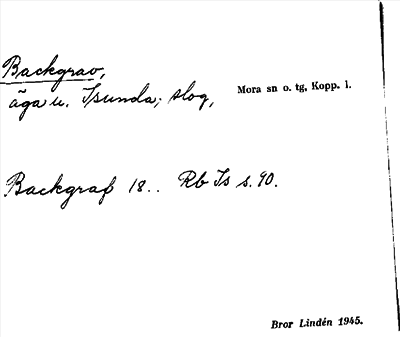 Backgrav,
äga u. Isunda; slog,
Mora sn o. tg, Kopp. l.
Backgraf 18.. Rb Is s. 90.
Bror Lindén 1945.